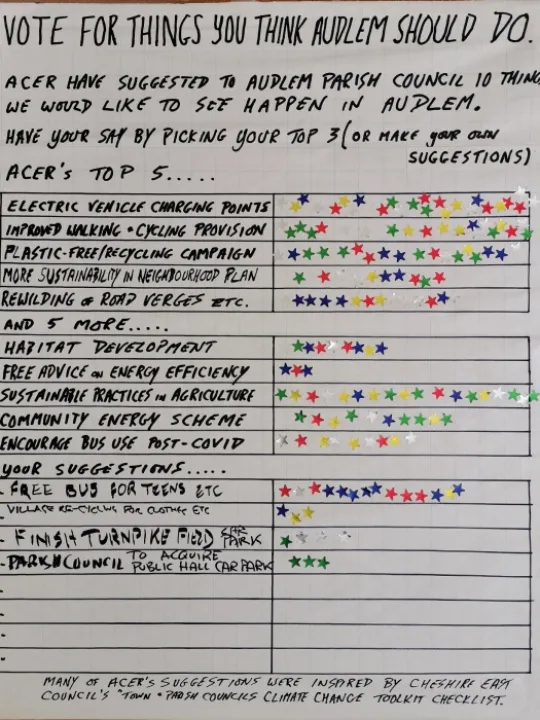 VOTE FOR THINGS YOU THINK AUDLEM SHOULD DO.
ACER HAVE SUGGESTED TO AUDLEM PARISH COUNCIL 10 THING
WE WOULD LIKE TO SEE HAPPEN IN AUDLEM.
HAVE YOUR SAY BY PICKING YOUR TOP 3 (OR MAKE YOUR OWN
SUGGESTIONS)
ACER'S TOP 5.....
ELECTRIC VEHICLE CHARGING POINTS
IMPROVED WALKING + CYCLING PROVISION
PLASTIC-FREE/RECYCLING CAMPAIGN
MORE SUSTAINABILITY IN NEIGHBOURHOOD PLAN
REWILDING OF ROAD VERGES ETC.
AND 5 MORE.....
HABITAT DEVELOPMENT
FREE ADVICE ON ENERGY EFFICIENCY
SUSTAINABLE PRACTICES IN AGRICULTURE
COMMUNITY ENERGY SCHEME
ENCOURAGE BUS USE POST-COVID
YOUR SUGGESTIONS.....
- FREE BUS FOR TEENS ETC
VILLAGE RE-CYCLING FOR CLOTHES ETC
- FINISH TURNPIKE FIELD CAR PARK
- PARISH COUNCIL TO ACQUIRE PUBLIC HALL CAR PARK
MANY OF ACER'S SUGGESTIONS WERE INSPIRED BY CHESHIRE EAST
COUNCIL'S "TOWN + PARISH COUNCILS CLIMATE CHANGE TOOLKIT CHECKLIST.